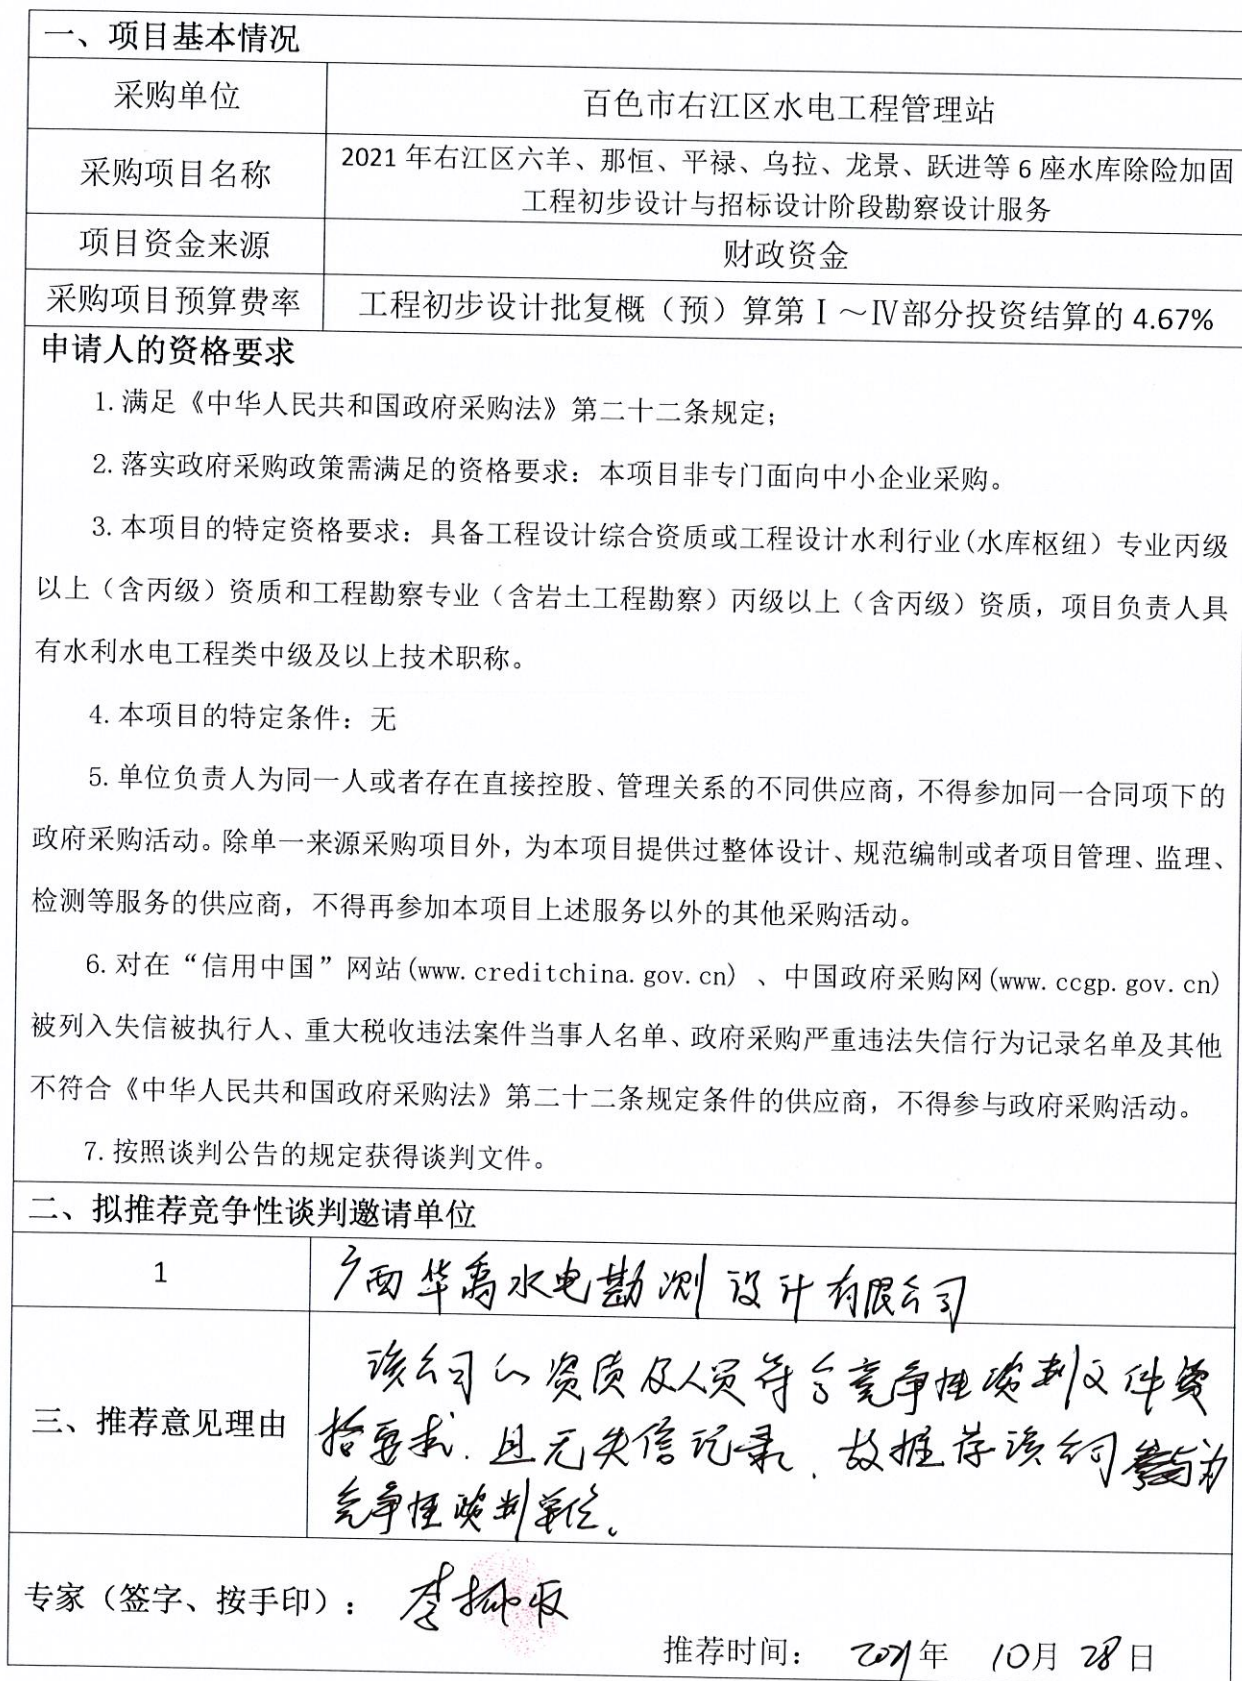 一、项目基本情况
采购单位
百色市右江区水电工程管理站
采购项目名称
2021 年右江区六羊、那恒、平禄、乌拉、龙景、跃进等 6 座水库除险加固
工程初步设计与招标设计阶段勘察设计服务
项目资金来源
财政资金
采购项目预算费率
工程初步设计批复概（预）算第Ⅰ～Ⅳ部分投资结算的 4.67%
申请人的资格要求
1.满足《中华人民共和国政府采购法》第二十二条规定；
2.落实政府采购政策需满足的资格要求：本项目非专门面向中小企业采购。
3.本项目的特定资格要求：具备工程设计综合资质或工程设计水利行业(水库枢纽）专业丙级
以上（含丙级）资质和工程勘察专业（含岩土工程勘察）丙级以上（含丙级）资质，项目负责人具
有水利水电工程类中级及以上技术职称。
4.本项目的特定条件：无
5.单位负责人为同一人或者存在直接控股、管理关系的不同供应商，不得参加同一合同项下的
政府采购活动。除单一来源采购项目外，为本项目提供过整体设计、规范编制或者项目管理、监理、
检测等服务的供应商，不得再参加本项目上述服务以外的其他采购活动。
6.对在“信用中国”网站(www.creditchina.gov.cn) 、中国政府采购网(www.ccgp.gov.cn)
被列入失信被执行人、重大税收违法案件当事人名单、政府采购严重违法失信行为记录名单及其他
不符合《中华人民共和国政府采购法》第二十二条规定条件的供应商，不得参与政府采购活动。
7.按照谈判公告的规定获得谈判文件。
二、拟推荐竞争性谈判邀请单位
1
广西华禹水电勘测设计有限公司
三、推荐意见理由
该公司的资质及人员符合竞争性谈判文件资
格要求.且无失信记录.故推荐该公司为
竞争性谈判单位。
专家（签字、按手印）：李
推荐时间： 2021年 10月 28日